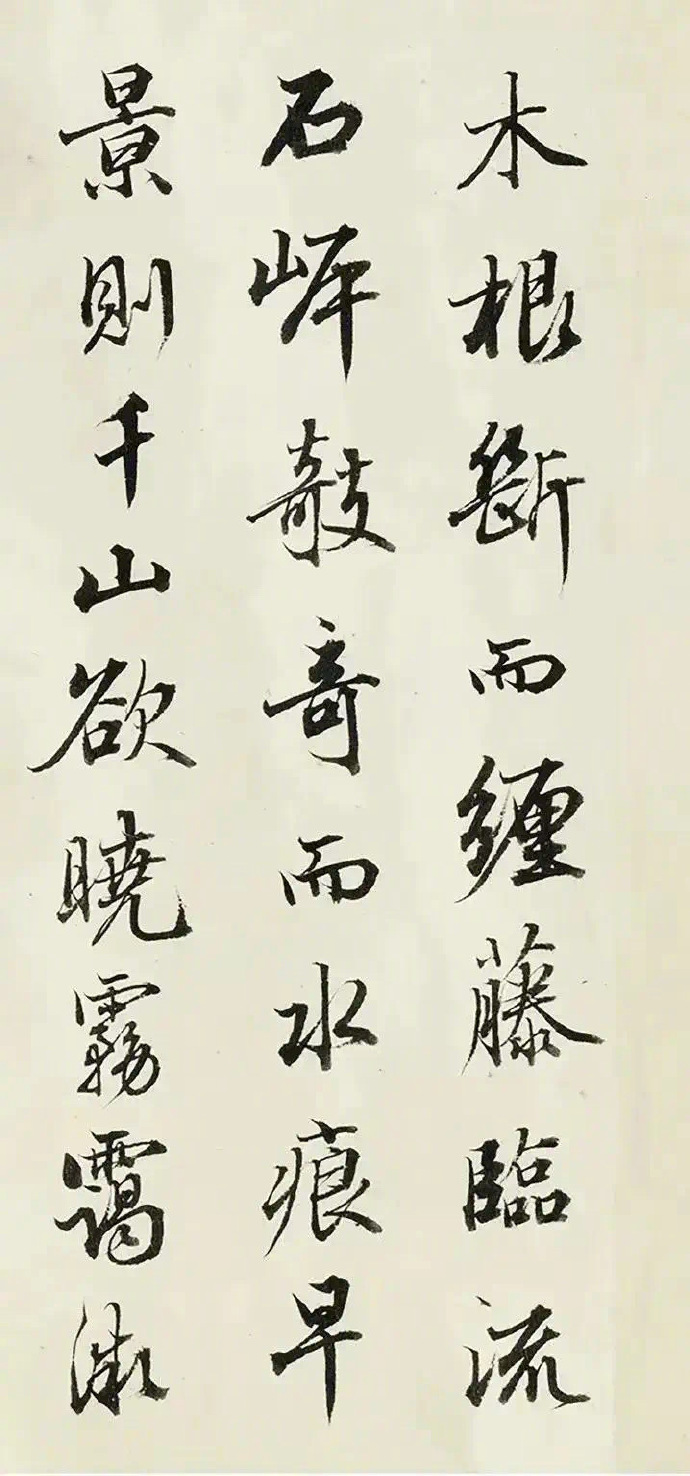 木根斷而纏藤臨流
石岸欹奇而水痕早
景則千山欲曉霧靄微